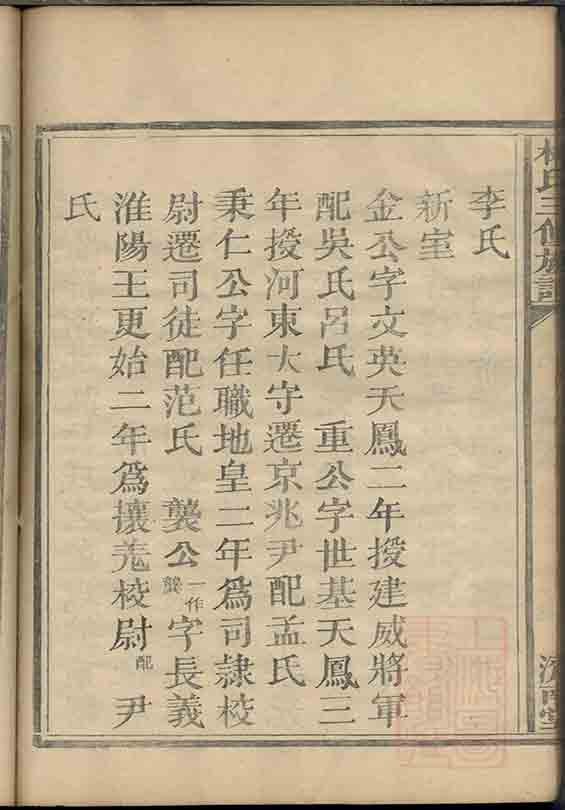 氏三修族譜
李氏
新室
金公字文英天鳳二年授建威將軍
配吳氏呂氏 重公字世基天鳳三
年授河東大守遷京兆尹配孟氏
秉仁公字任職地皇二年爲司隸校
尉遷司徒配范氏 襲公一作龑字長義
淮陽王更始二年爲攘羌校尉配尹
氏